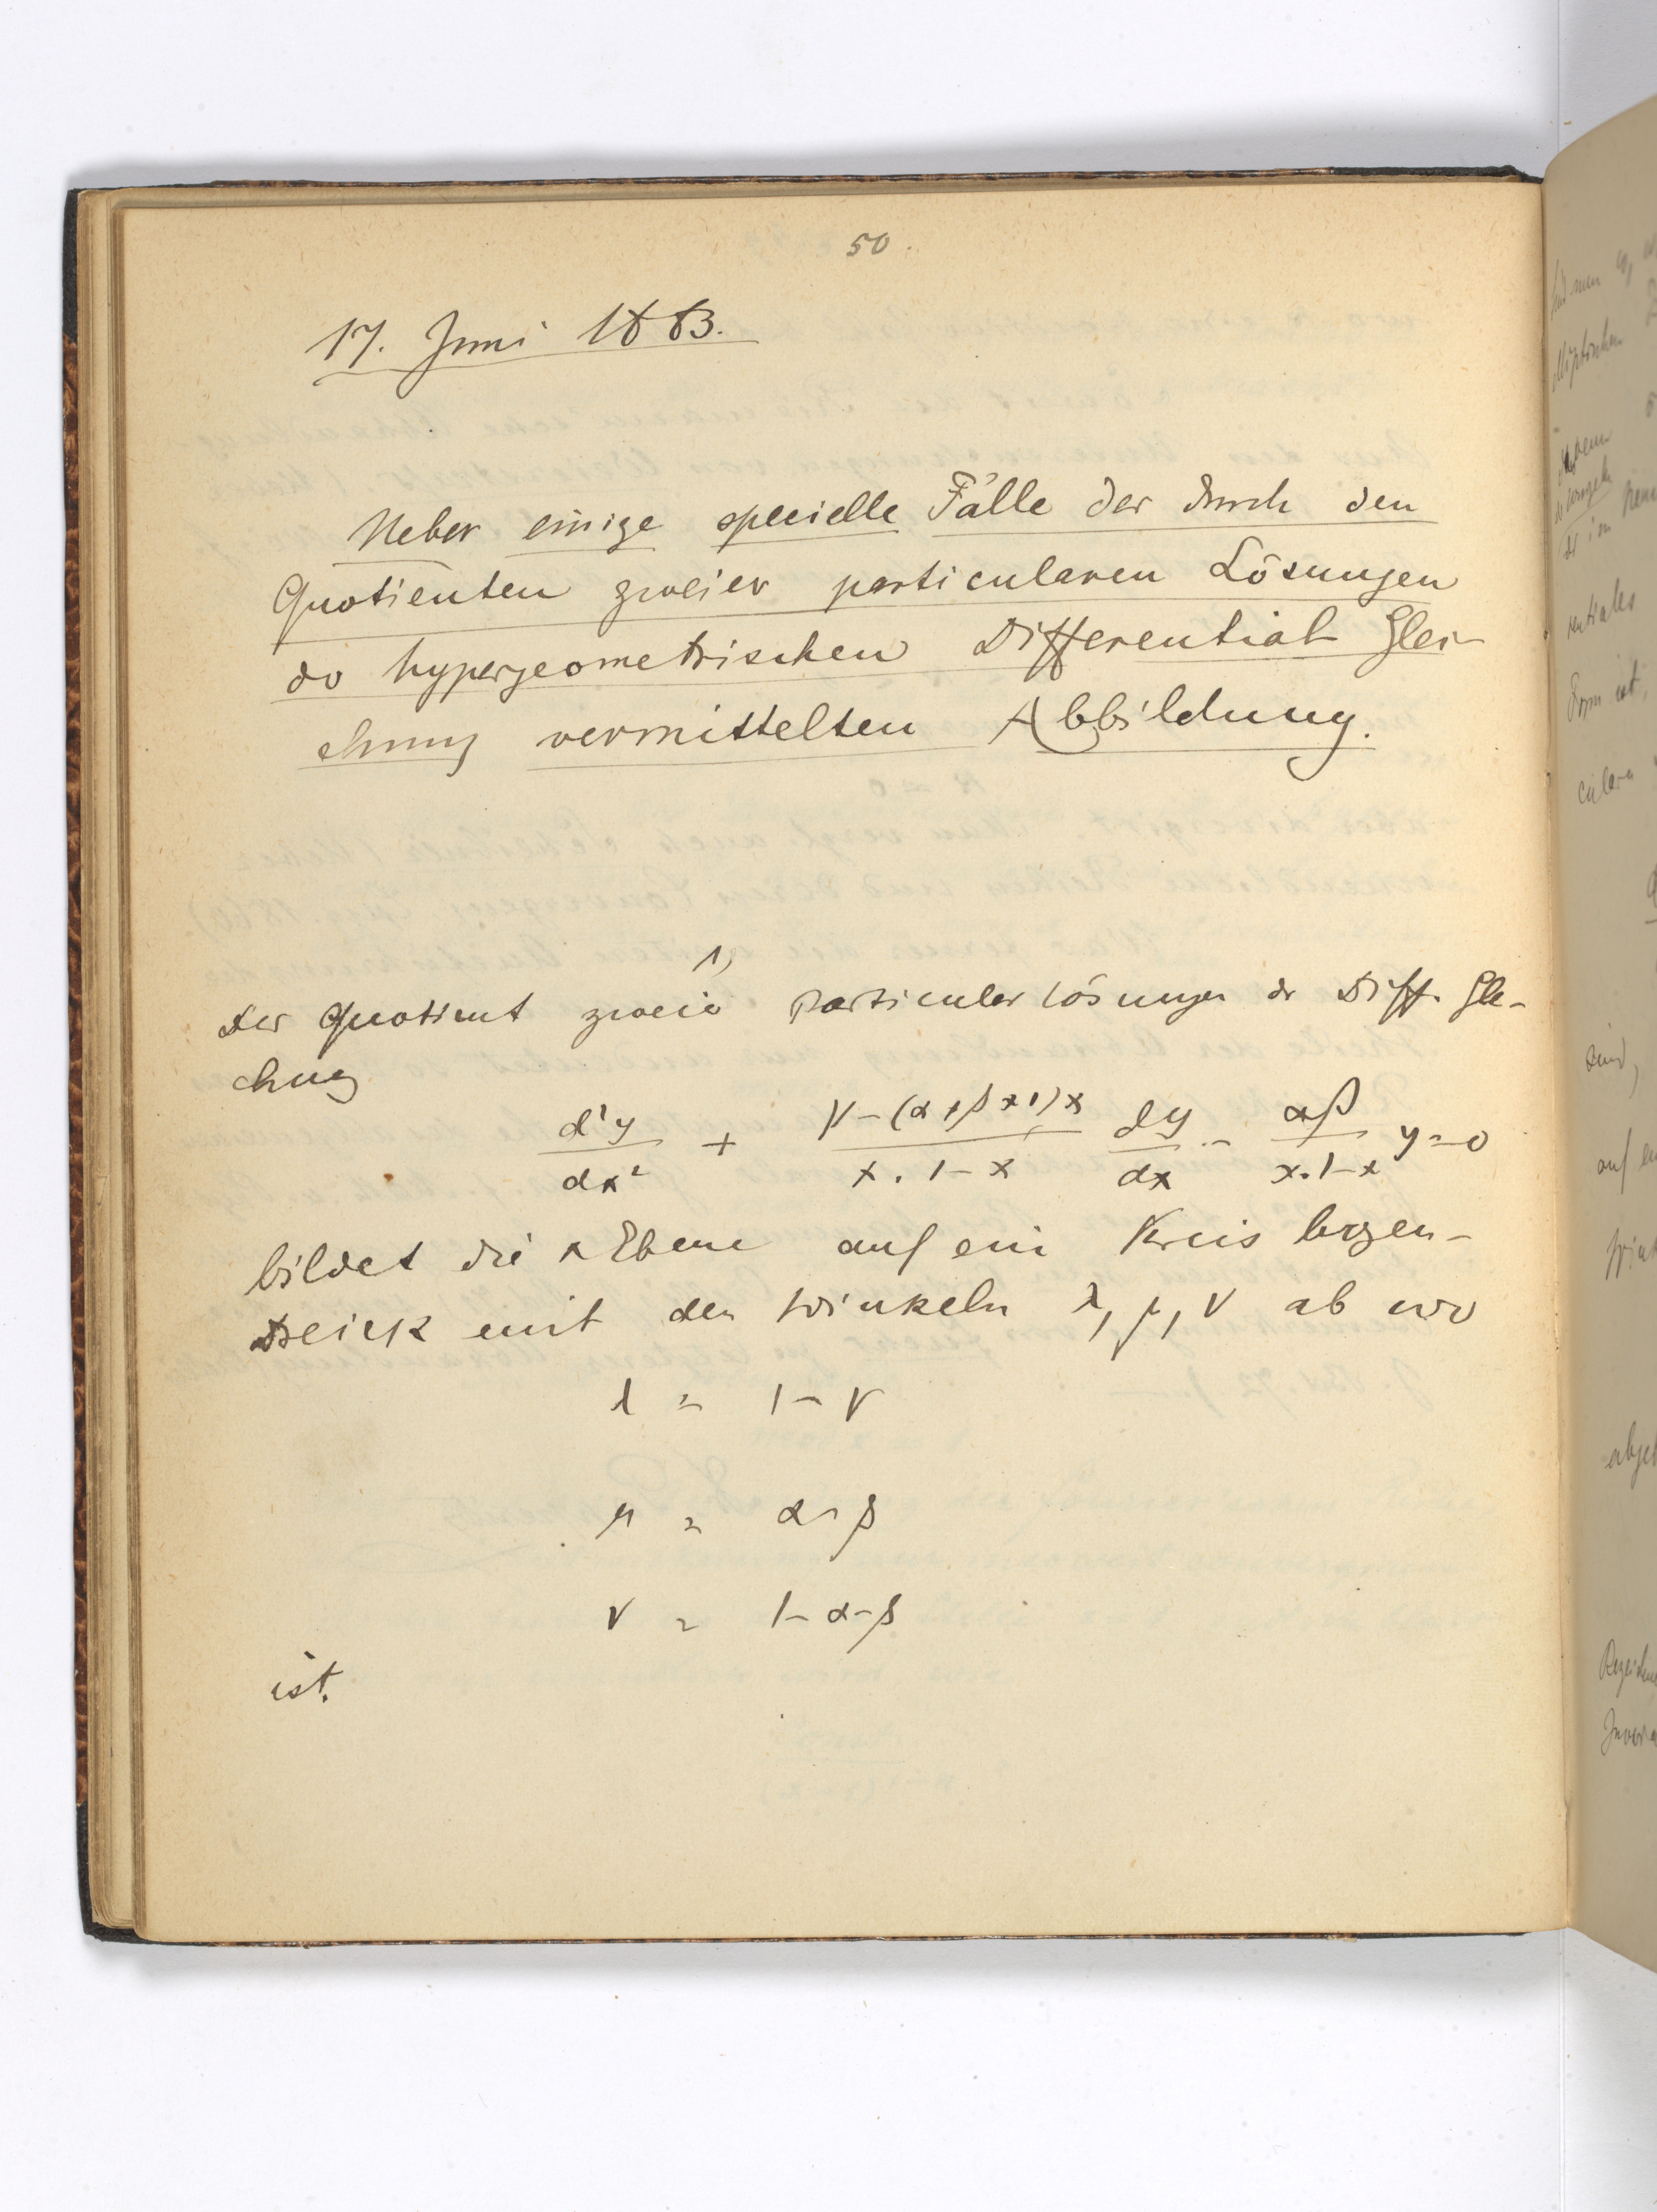 50.
17. Juni 1883.
Ueber einige specielle Fälle der durch den
Quotienten zweier particularen Lösungen
der hypergeometrischen Differential Glei-
chung vermittelten Abbildung.
1)
Der Quotient zweier Particularlösungen der Diff. Glei-
chung
d²y/dx² + γ-(α+β+1)x/x.1-x dy/dx - αβ/x.1-x y=0
bildet die x Ebene auf ein Kreisbogen-
Dreieck mit den Winkeln λ, μ, ν ab wo
λ = 1-γ
μ = α-β
ν = 1-α-β
ist.